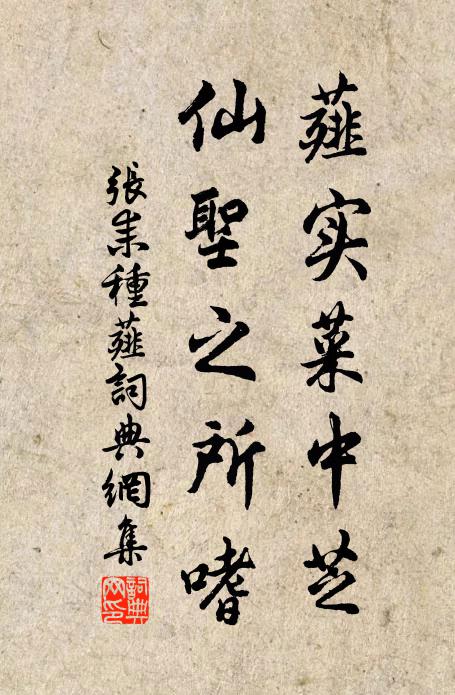 薤实菜中芝
仙聖之所嗜
張耒種薤詞典網集
詞典网印